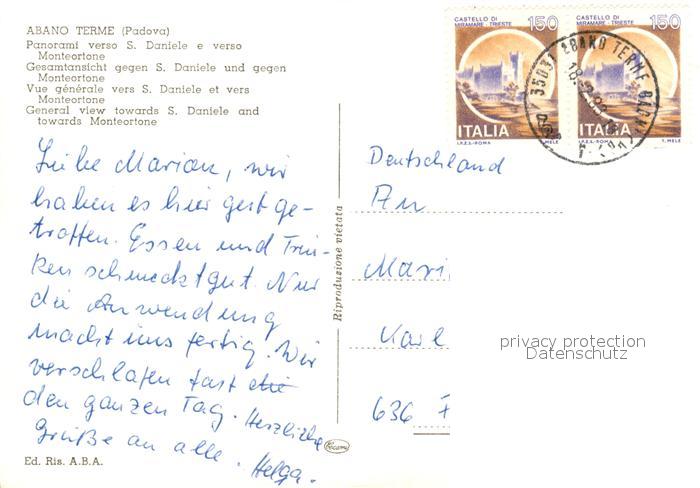 ABANO TERME (Padova)
Panorami verso S. Daniele e verso
Monteortone
Gesamtansicht gegen S. Daniele und gegen
Monteortone
Vue générale vers S. Daniele et vers
Monteortone
General view towards S. Daniele and
towards Monteortone
Liebe Marion, wir
haben es hier gut ge-
troffen. Essen und Trin-
ken schmeckt gut. Nur
die Anwendung
macht uns fertig. Wir
verschlafen fast die
den ganzen Tag. Herzliche
Grüße an alle. Helga.
Ed. Ris. A.B.A.
Riproduzione vietata
CASTELLO DI
MIRAMARE - TRIESTE
150
ITALIA
I.P.Z.S. - ROMA
CASTELLO DI
MIRAMARE - TRIESTE
150
ITALIA
I.P.Z.S. - ROMA
T. MELE
ABANO TERME
Deutschland
An
Mari
Karl
636 F
privacy protection
Datenschutz